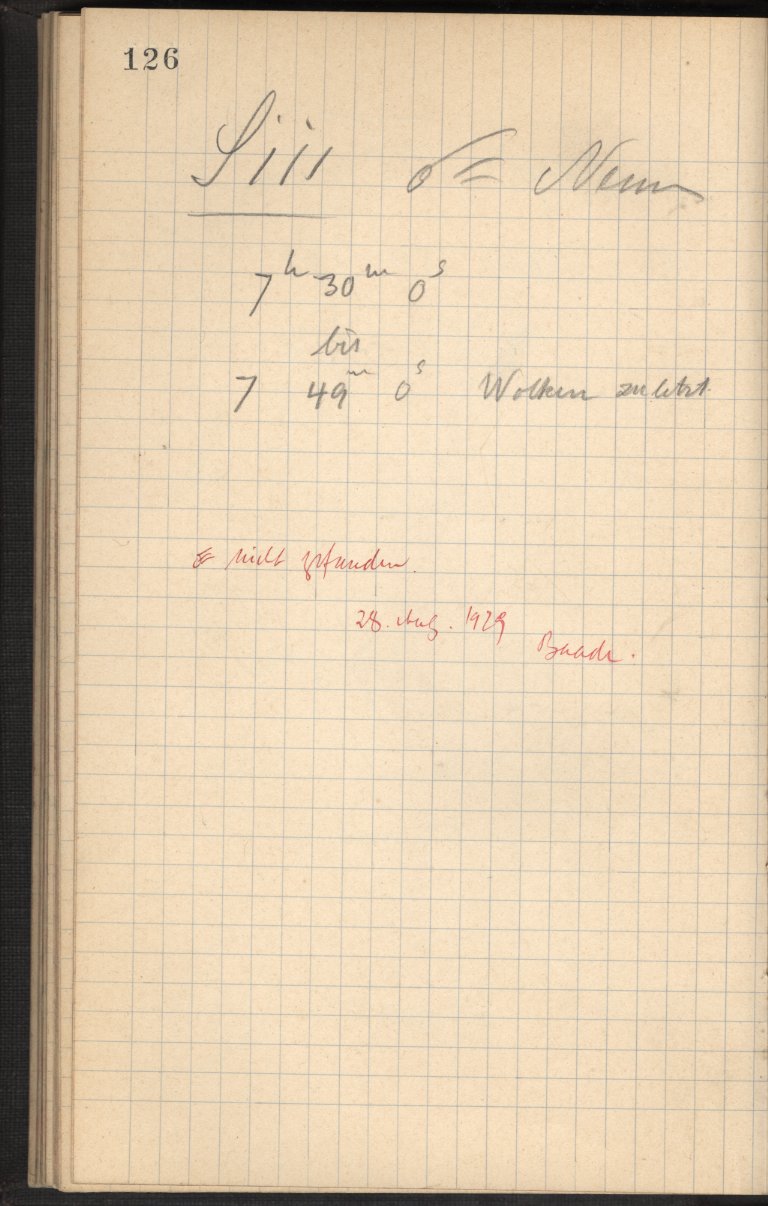 126
7h 30m 0s
bis
7 49m 0s Wolken zuletzt
nicht gefunden.
28. Aug. 1929
Baade.